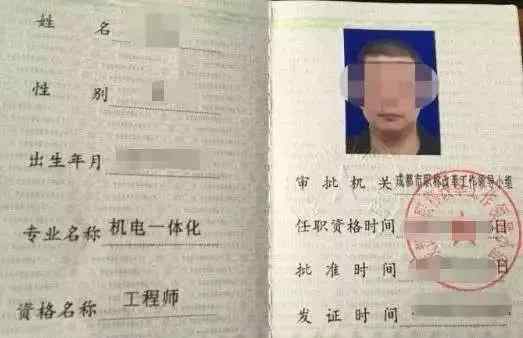 姓 名
性 别
出生年月
专业名称 机电一体化
资格名称 工程师
审批机关 成都市职称改革工作领导小组
任职资格时间 日
批准时间 日
发证时间